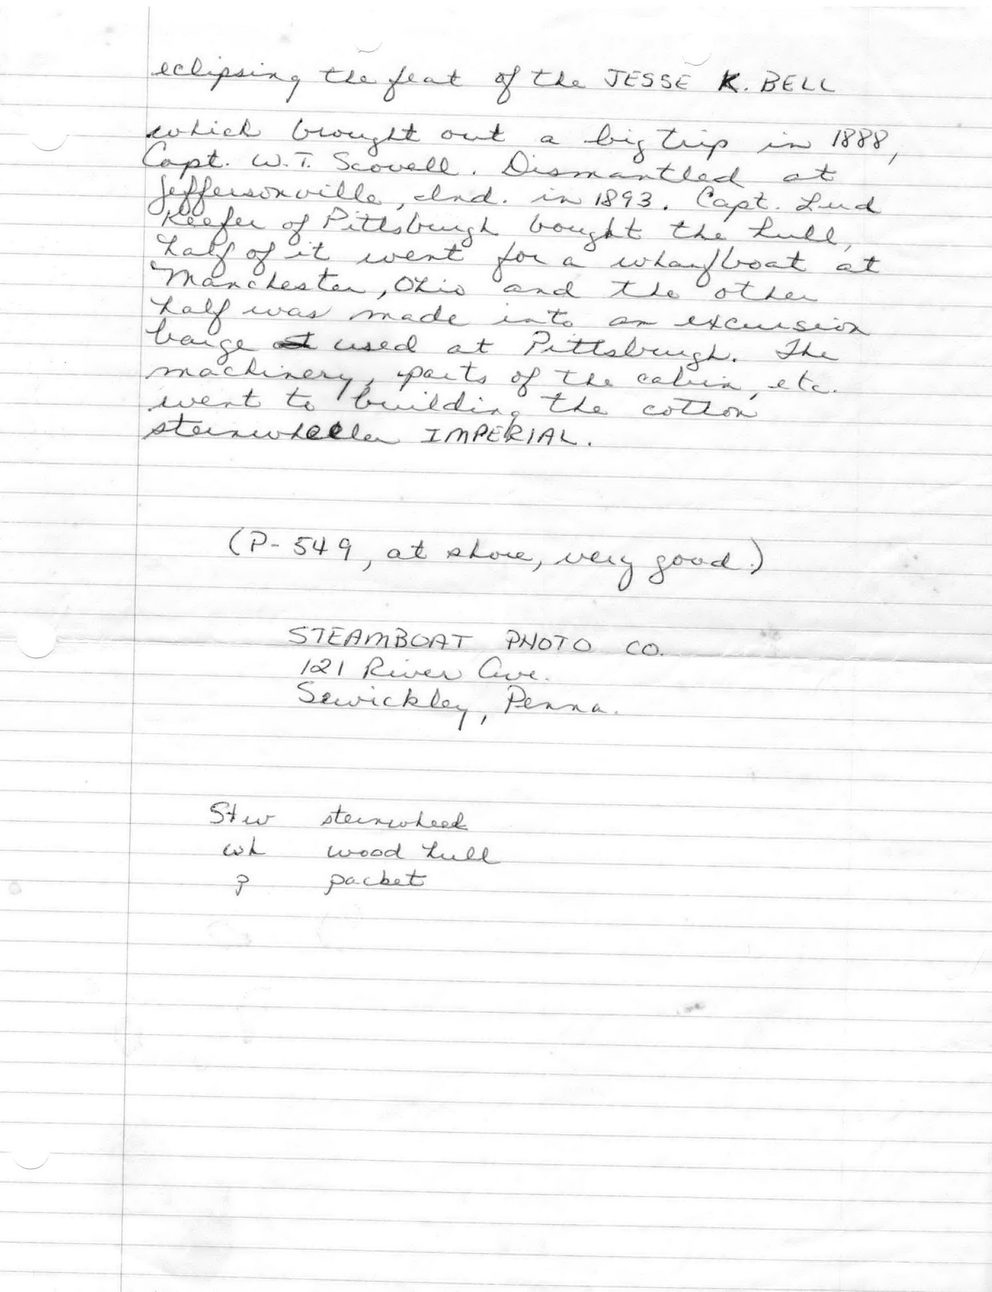 eclipsing the feat of the JESSE K. BELL
which brought out a big trip in 1888,
Capt. W.T. Scovell. Dismantled at
Jeffersonville, Ind. in 1893. Capt. Lud
Keefer of Pittsburgh bought the hull,
half of it went for a wharfboat at
Manchester, Ohio and the other
half was made into an excursion
barge used at Pittsburgh. The
machinery, parts of the cabin, etc.
went to building the cotton
sternwheeler IMPERIAL.
(P-549, at shore, very good.)
STEAMBOAT PHOTO CO.
121 River Ave.
Sewickley, Penna.
Stw sternwheel
wh wood hull
p packet